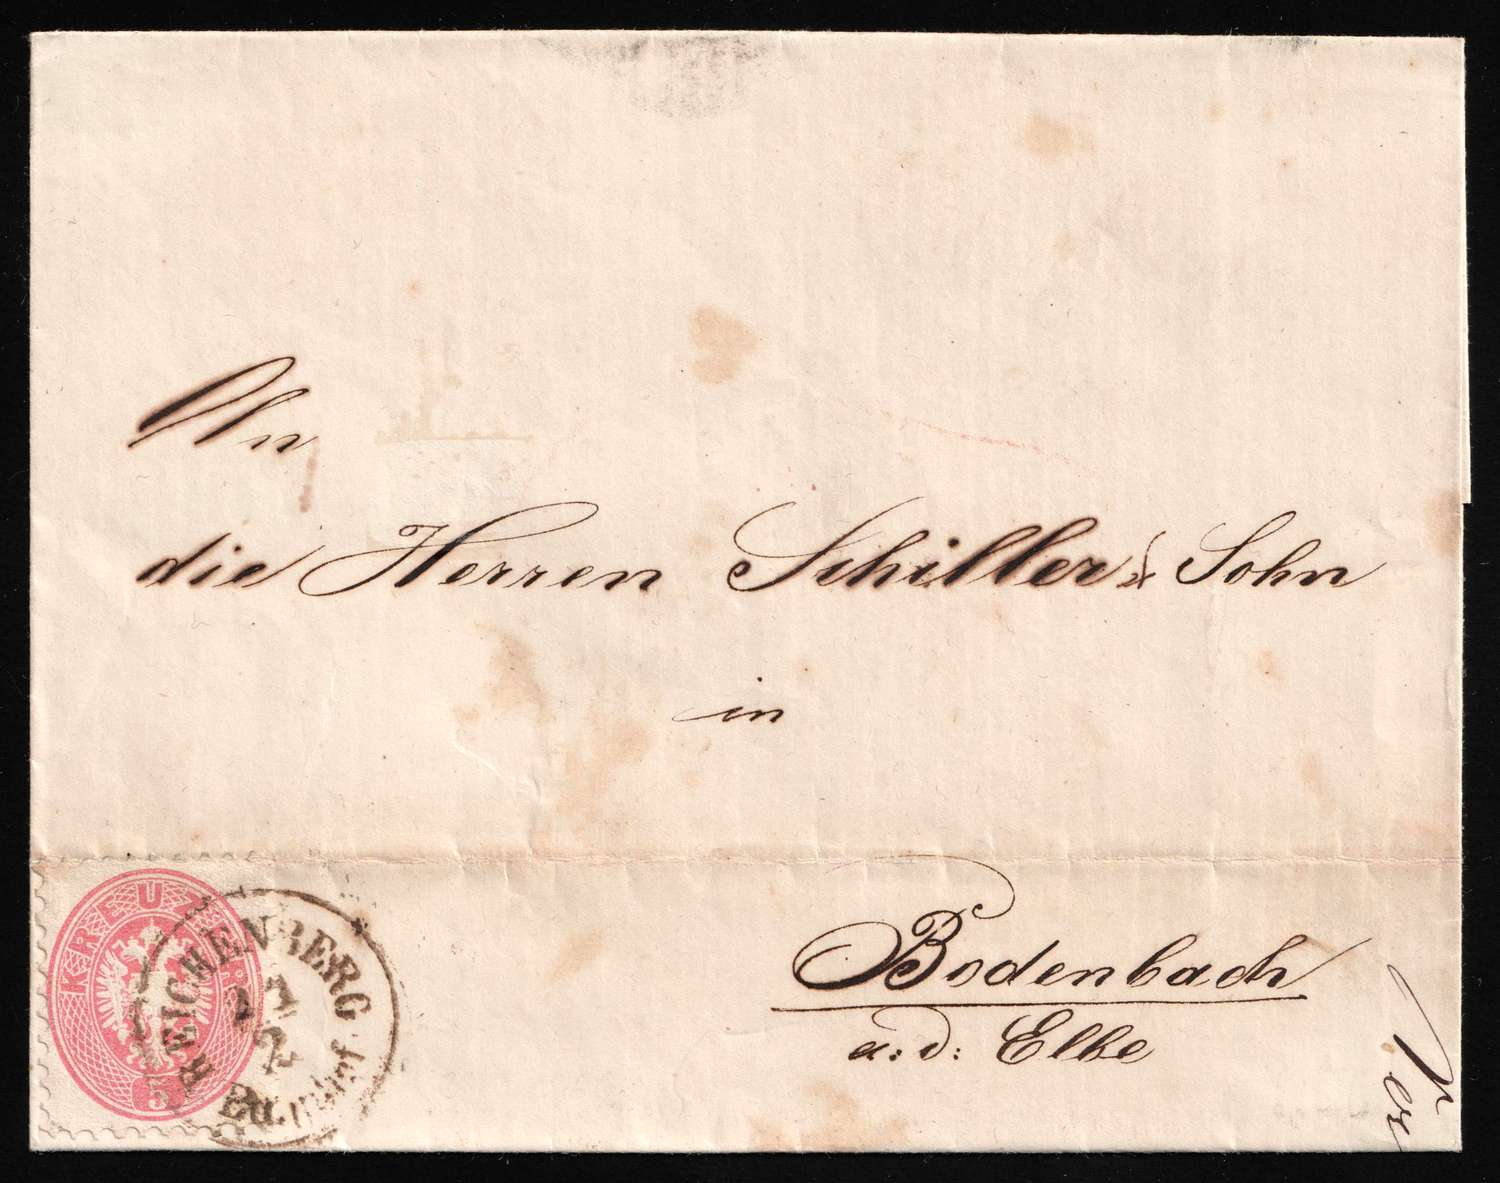 An
die Herren Schiller & Sohn
in
Bodenbach
a: d: Elbe
KREUZER
5
REICHENBERG
2
Bahnhof